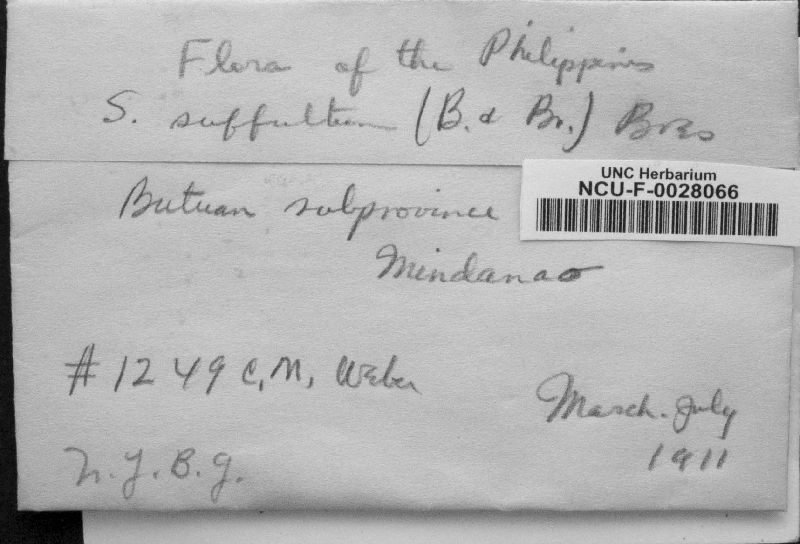 Flora of the Philippines
S. suffultum (B. & Br.) Bres
UNC Herbarium
NCU-F-0028066
Butuan subprovince
Mindanao
# 1249 C. M. Weber
March-July
1911
N.Y.B.G.